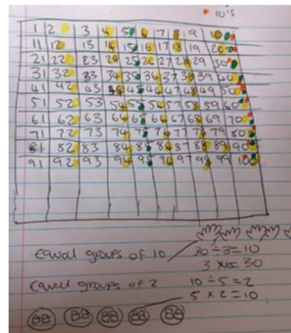 10's
1 2 3 4 5 6 7 8 9 10
11 12 13 14 15 16 17 18 19 20
21 22 23 24 25 26 27 28 29 30
31 32 33 34 35 36 37 38 39 40
41 42 43 44 45 46 47 48 49 50
51 52 53 54 55 56 57 58 59 60
61 62 63 64 65 66 67 68 69 70
71 72 73 74 75 76 77 78 79 80
81 82 83 84 85 86 87 88 89 90
91 92 93 94 95 96 97 98 99 100
equal groups of 10
30 ÷ 3 = 10
equal groups of 2
10 ÷ 5 = 2
5 x 2 = 10